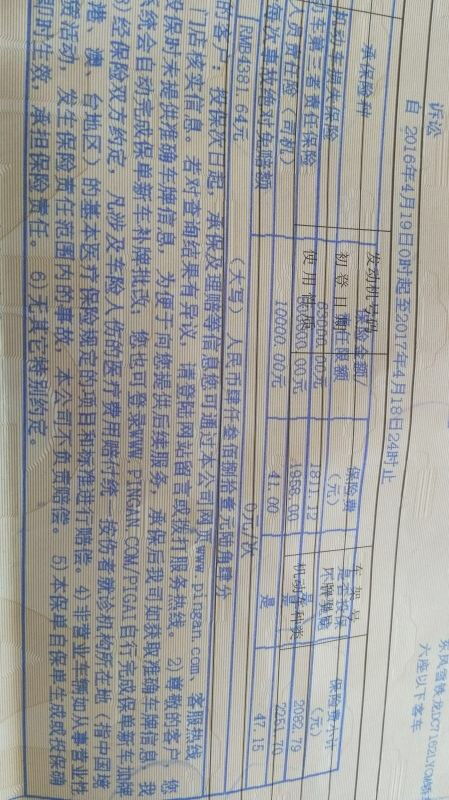 六座以下客车
诉讼
自 2016年4月19日0时起至2017年4月18日24时止
发动机号码
初登日期
使用性质
机动车种类
承保险种 保险金额/ 保险费（元） 是否投保 保险费小计（元）
机动车损失保险 1811.12 2082.79
车第三者责任保险 1958.00 是 2251.70
人员责任险（司机） 10000.00元 41.00 是 47.15
每次事故绝对免赔额 0元/次
RMB4381.64元 （大写）人民币肆仟叁佰捌拾壹元陆角肆分
的客户，投保次日起，承保及理赔等信息您可通过本公司网页www.pingan.com、客服热线
门店核实信息。若对查询结果有异议，请登陆网站留言或拨打服务热线。 2)尊敬的客户，您
投保时未提供准确车牌信息，为便于向您提供后续服务，承保后我司如获取准确车牌信息，我
系统会自动完成保单新车补牌批改，您也可登录WWW.PINGAN.COM/PIGAI自行完成保单新车加牌
3)经保险双方约定，凡涉及车险人伤的医疗费用赔付统一按伤者就诊机构所在地（指中国境
港、澳、台地区）的基本医疗保险规定的项目和标准进行赔偿。4)非营业车辆如从事营业性
赁活动，发生保险责任范围内的事故，本公司不负责赔偿。 5)本保单自保单生成或投保确
即时生效，承担保险责任。 6)无其它特别约定。